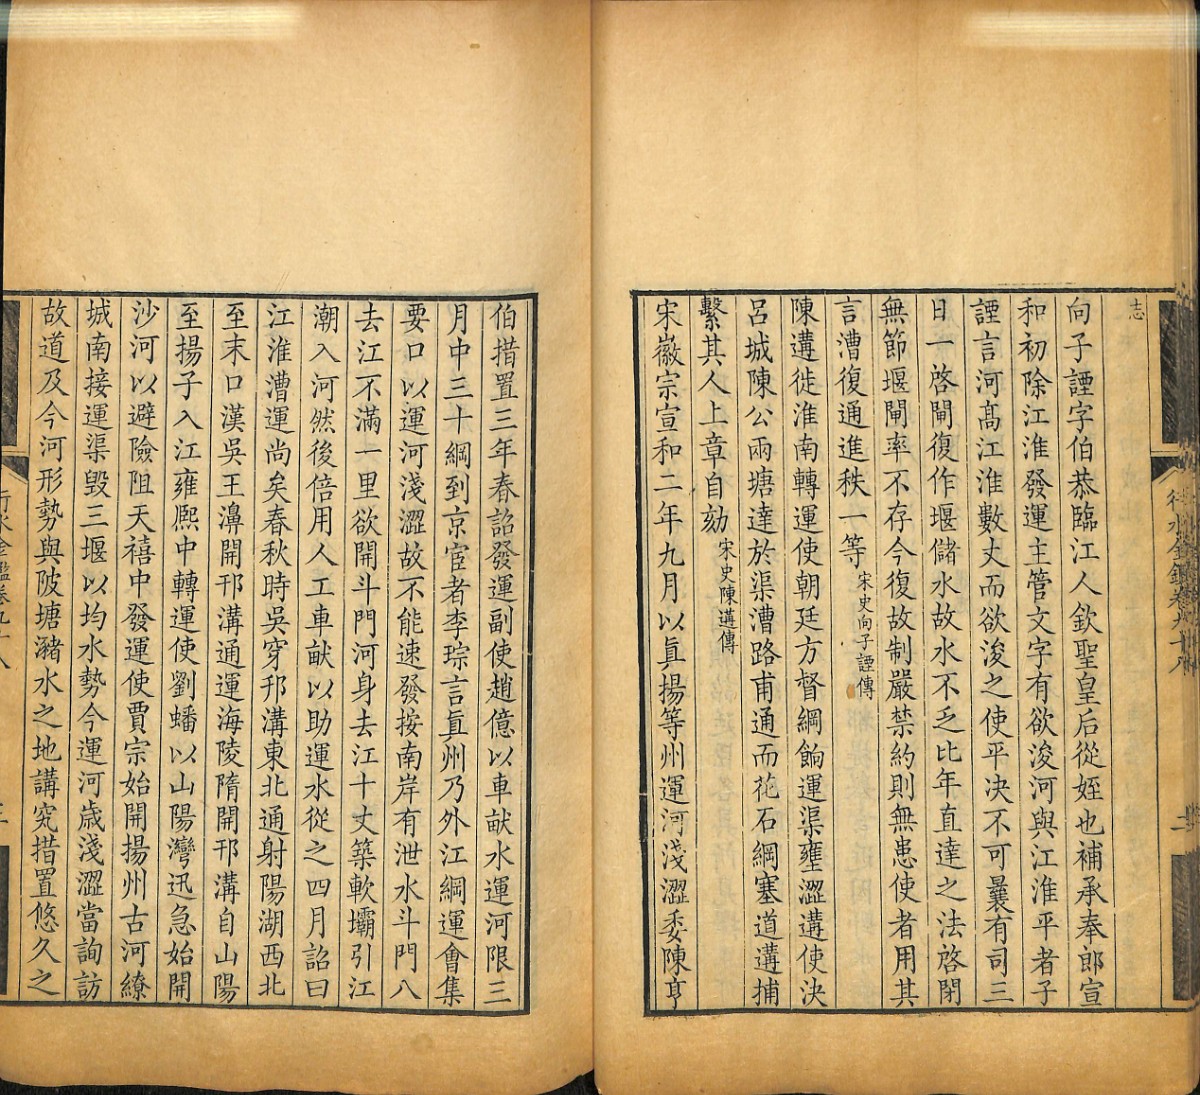 志
向子諲字伯恭臨江人欽聖皇后從姪也補承奉郎宣
和初除江淮發運主管文字有欲浚河與江淮平者子
諲言河高江淮數丈而欲浚之使平決不可曩有司三
日一啓閘復作堰儲水故水不乏比年直達之法啓閉
無節堰閘率不存今復故制嚴禁約則無患使者用其
言漕復通進秩一等宋史向子諲傳
陳遘徙淮南轉運使朝廷方督綱餉運渠壅澀遘使決
呂城陳公兩塘達於渠漕路甫通而花石綱塞道遘捕
繫其人上章自劾宋史陳遘傳
宋徽宗宣和二年九月以眞揚等州運河淺澀委陳亨
伯措置三年春詔發運副使趙億以車畎水運河限三
月中三十綱到京宦者李琮言眞州乃外江綱運會集
要口以運河淺澀故不能速發按南岸有泄水斗門八
去江不滿一里欲開斗門河身去江十丈築軟壩引江
潮入河然後倍用人工車畎以助運水從之四月詔曰
江淮漕運尚矣春秋時吳穿邗溝東北通射陽湖西北
至末口漢吳王濞開邗溝通運海陵隋開邗溝自山陽
至揚子入江雍熙中轉運使劉蟠以山陽灣迅急始開
沙河以避險阻天禧中發運使賈宗始開揚州古河繚
城南接運渠毀三堰以均水勢今運河歲淺澀當詢訪
故道及今河形勢與陂塘瀦水之地講究措置悠久之
行水金鑑卷九十八
三